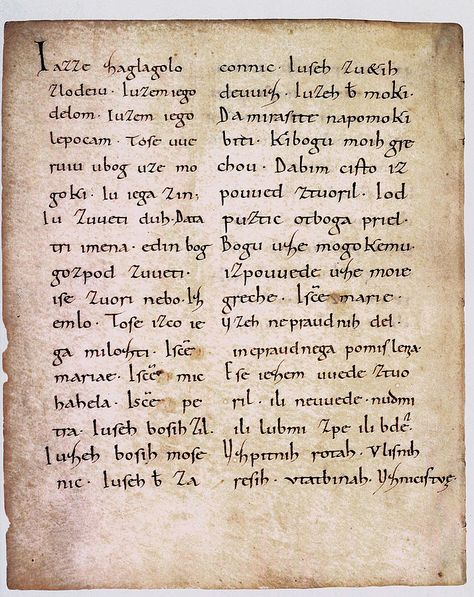 Iazze zaglagolo
zlodeiu · Iuzem iego
delom · Iuzem iego
lepocam · Tose uue
ruiu ubog uze mo
goki · Iu iega zin ·
Iu zuueti duh · Data
tri imena · edin bog
gozpod zuueti ·
ise zuori nebo · Iz
emlo · Tose izco ie
ga milozti · Isc̄e
mariae · Isc̄e mic
hahela · Isc̄e pe
tra · Iuseh bosih zil ·
Iuzeh bosih mose
nic · Iuseh b̄ za
connic · Iuseh zu&ih
deuuih · Iuzeh b̄ moki ·
Da mi rasite napomoki
biti · Kibogu moih gre
chou · Dabim cisto iz
pouued ztuoril · Iod
puztic otboga priel ·
Bogu uze mogokemu ·
izpouuede uze moie
greche · Isc̄e marie ·
Vzeh nepraudnih del ·
inepraudnega pomislenia ·
Ese iezem uuede ztuo
ril · ili neuuede · nudmi
ili lubmi zpe ili bde ·
Vzpitnih rotah · Vlisnih
resih · Vtatbinah · Vznicistuę ·